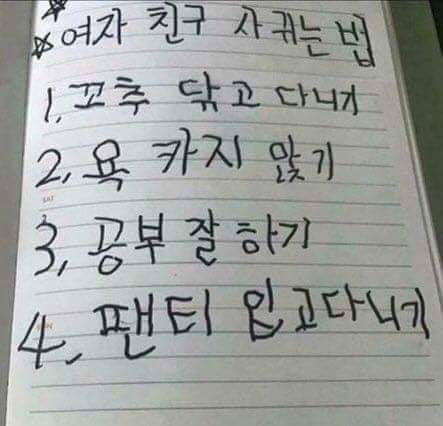 여자 친구 사귀는 법
1. 꼬추 닦고 다니기
2. 욕 카지 않기
3. 공부 잘 하기
4. 팬티 입고다니기